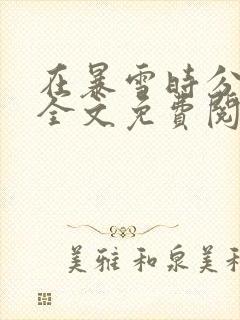 在暴雪時分
全文免費閱
美雅和泉美和